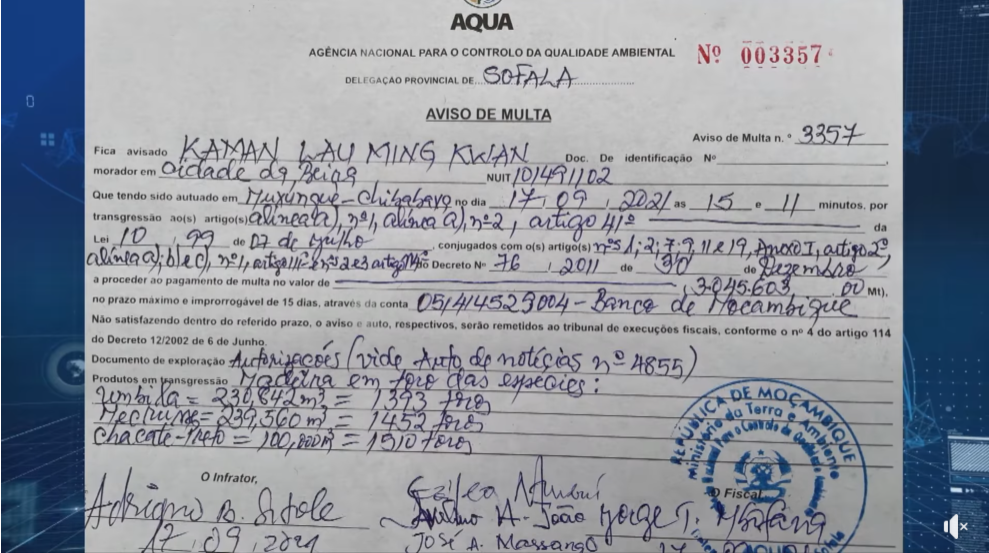 AQUA
AGÊNCIA NACIONAL PARA O CONTROLO DA QUALIDADE AMBIENTAL Nº 003357
DELEGAÇÃO PROVINCIAL DE SOFALA
AVISO DE MULTA
Aviso de Multa n.º 3357
Fica avisado KAMAN LAU MING KWAN Doc. De identificação Nº
morador em Cidade da Beira NUIT 101491102
Que tendo sido autuado em Muxungue-Chibabava no dia 17, 09, 2021 as 15 e 11 minutos, por
transgressão ao(s) artigo(s) alínea a), nº1, alínea a), nº2, artigo 41º da
Lei 10, 99 de 07 de Julho, conjugados com o(s) artigo(s) nºs 1; 2; 7; 9, 11 e 19, Anexo I, artigo 2º,
alínea a); b) e c), nº1, artigo 11º e nºs 2 e 3 artigo do Decreto Nº 76, 2011 de 30 de Dezembro
a proceder ao pagamento de multa no valor de 3.045.603,00 Mt),
no prazo máximo e improrrogável de 15 dias, através da conta 051414529004 - Banco de Moçambique
Não satisfazendo dentro do referido prazo, o aviso e auto, respectivos, serão remetidos ao tribunal de execuções fiscais, conforme o nº 4 do artigo 114
do Decreto 12/2002 de 6 de Junho.
Documento de exploração Autorizações (vide Auto de notícias nº 4855)
Produtos em transgressão Madeira em toro das espécies:
Umbila = 230,842 m³ = 1393 toros
Mecrusse = 239,560 m³ = 1452 toros
Chacate-Preto = 100,000 m³ = 1510 toros
REPÚBLICA DE MOÇAMBIQUE
Ministério da Terra e Ambiente
O Infrator,
O Fiscal
Adriano B. Sitole
A. João
Jorge T.
17, 09, 2021
José A. Massango